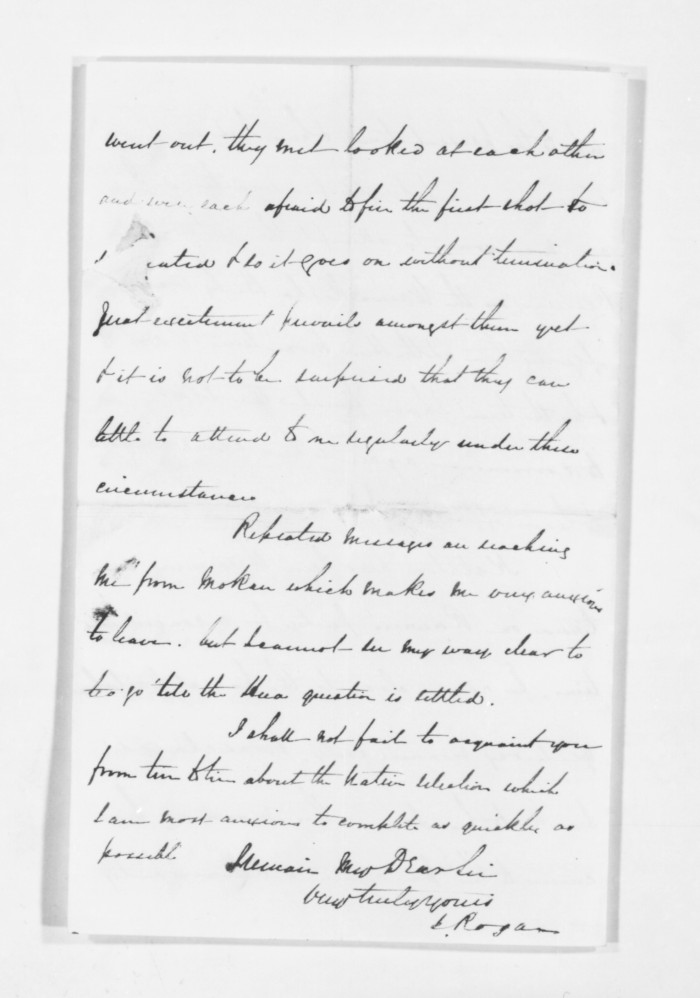 went out. they met looked at each other
and were each afraid to fire the first shot so
& so it goes on without termination.
Great excitement prevails amongst them yet
& it is not to be surprised that they can
little to attend to me regularly under these
circumstances
Repeated messages are reaching
me from Mokau which makes me very anxious
to leave. but I cannot see my way clear to
to go 'till the question is settled.
I shall not fail to acquaint you
from time to time about the Native election which
I am most anxious to complete as quickly as
possible
I remain My Dear Sir
Very truly yours
J. Rogan